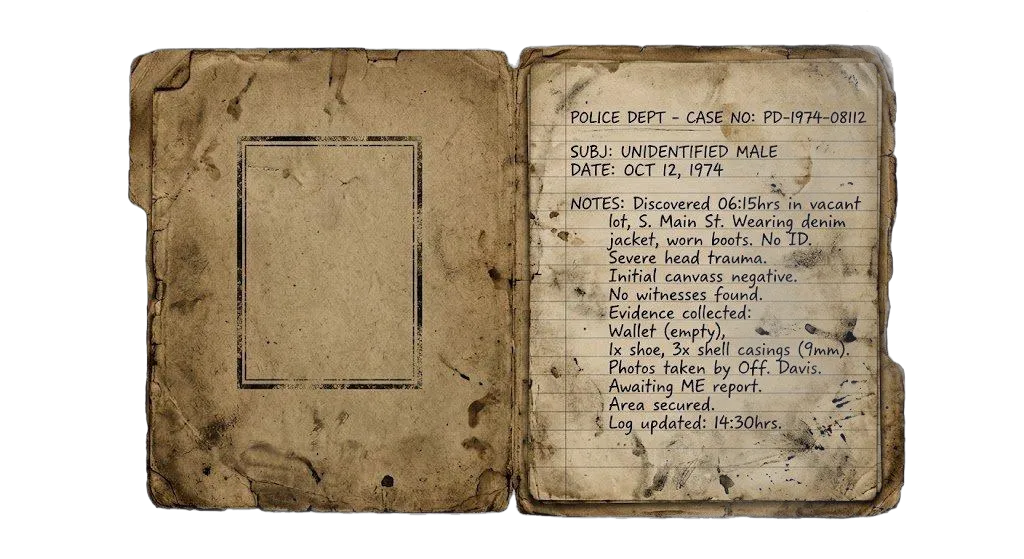 POLICE DEPT - CASE NO: PD-1974-08112
SUBJ: UNIDENTIFIED MALE
DATE: OCT 12, 1974
NOTES: Discovered 06:15hrs in vacant
lot, S. Main St. Wearing denim
jacket, worn boots. No ID.
Severe head trauma.
Initial canvass negative.
No witnesses found.
Evidence collected:
Wallet (empty),
1x shoe, 3x shell casings (9mm).
Photos taken by Off. Davis.
Awaiting ME report.
Area secured.
Log updated: 14:30hrs.